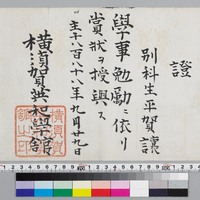 證
別科生平賀讓
學事勉勵ニ依リ
賞狀ヲ授與ス
主千八百八十八年九月廿九日
橫須賀共和學館